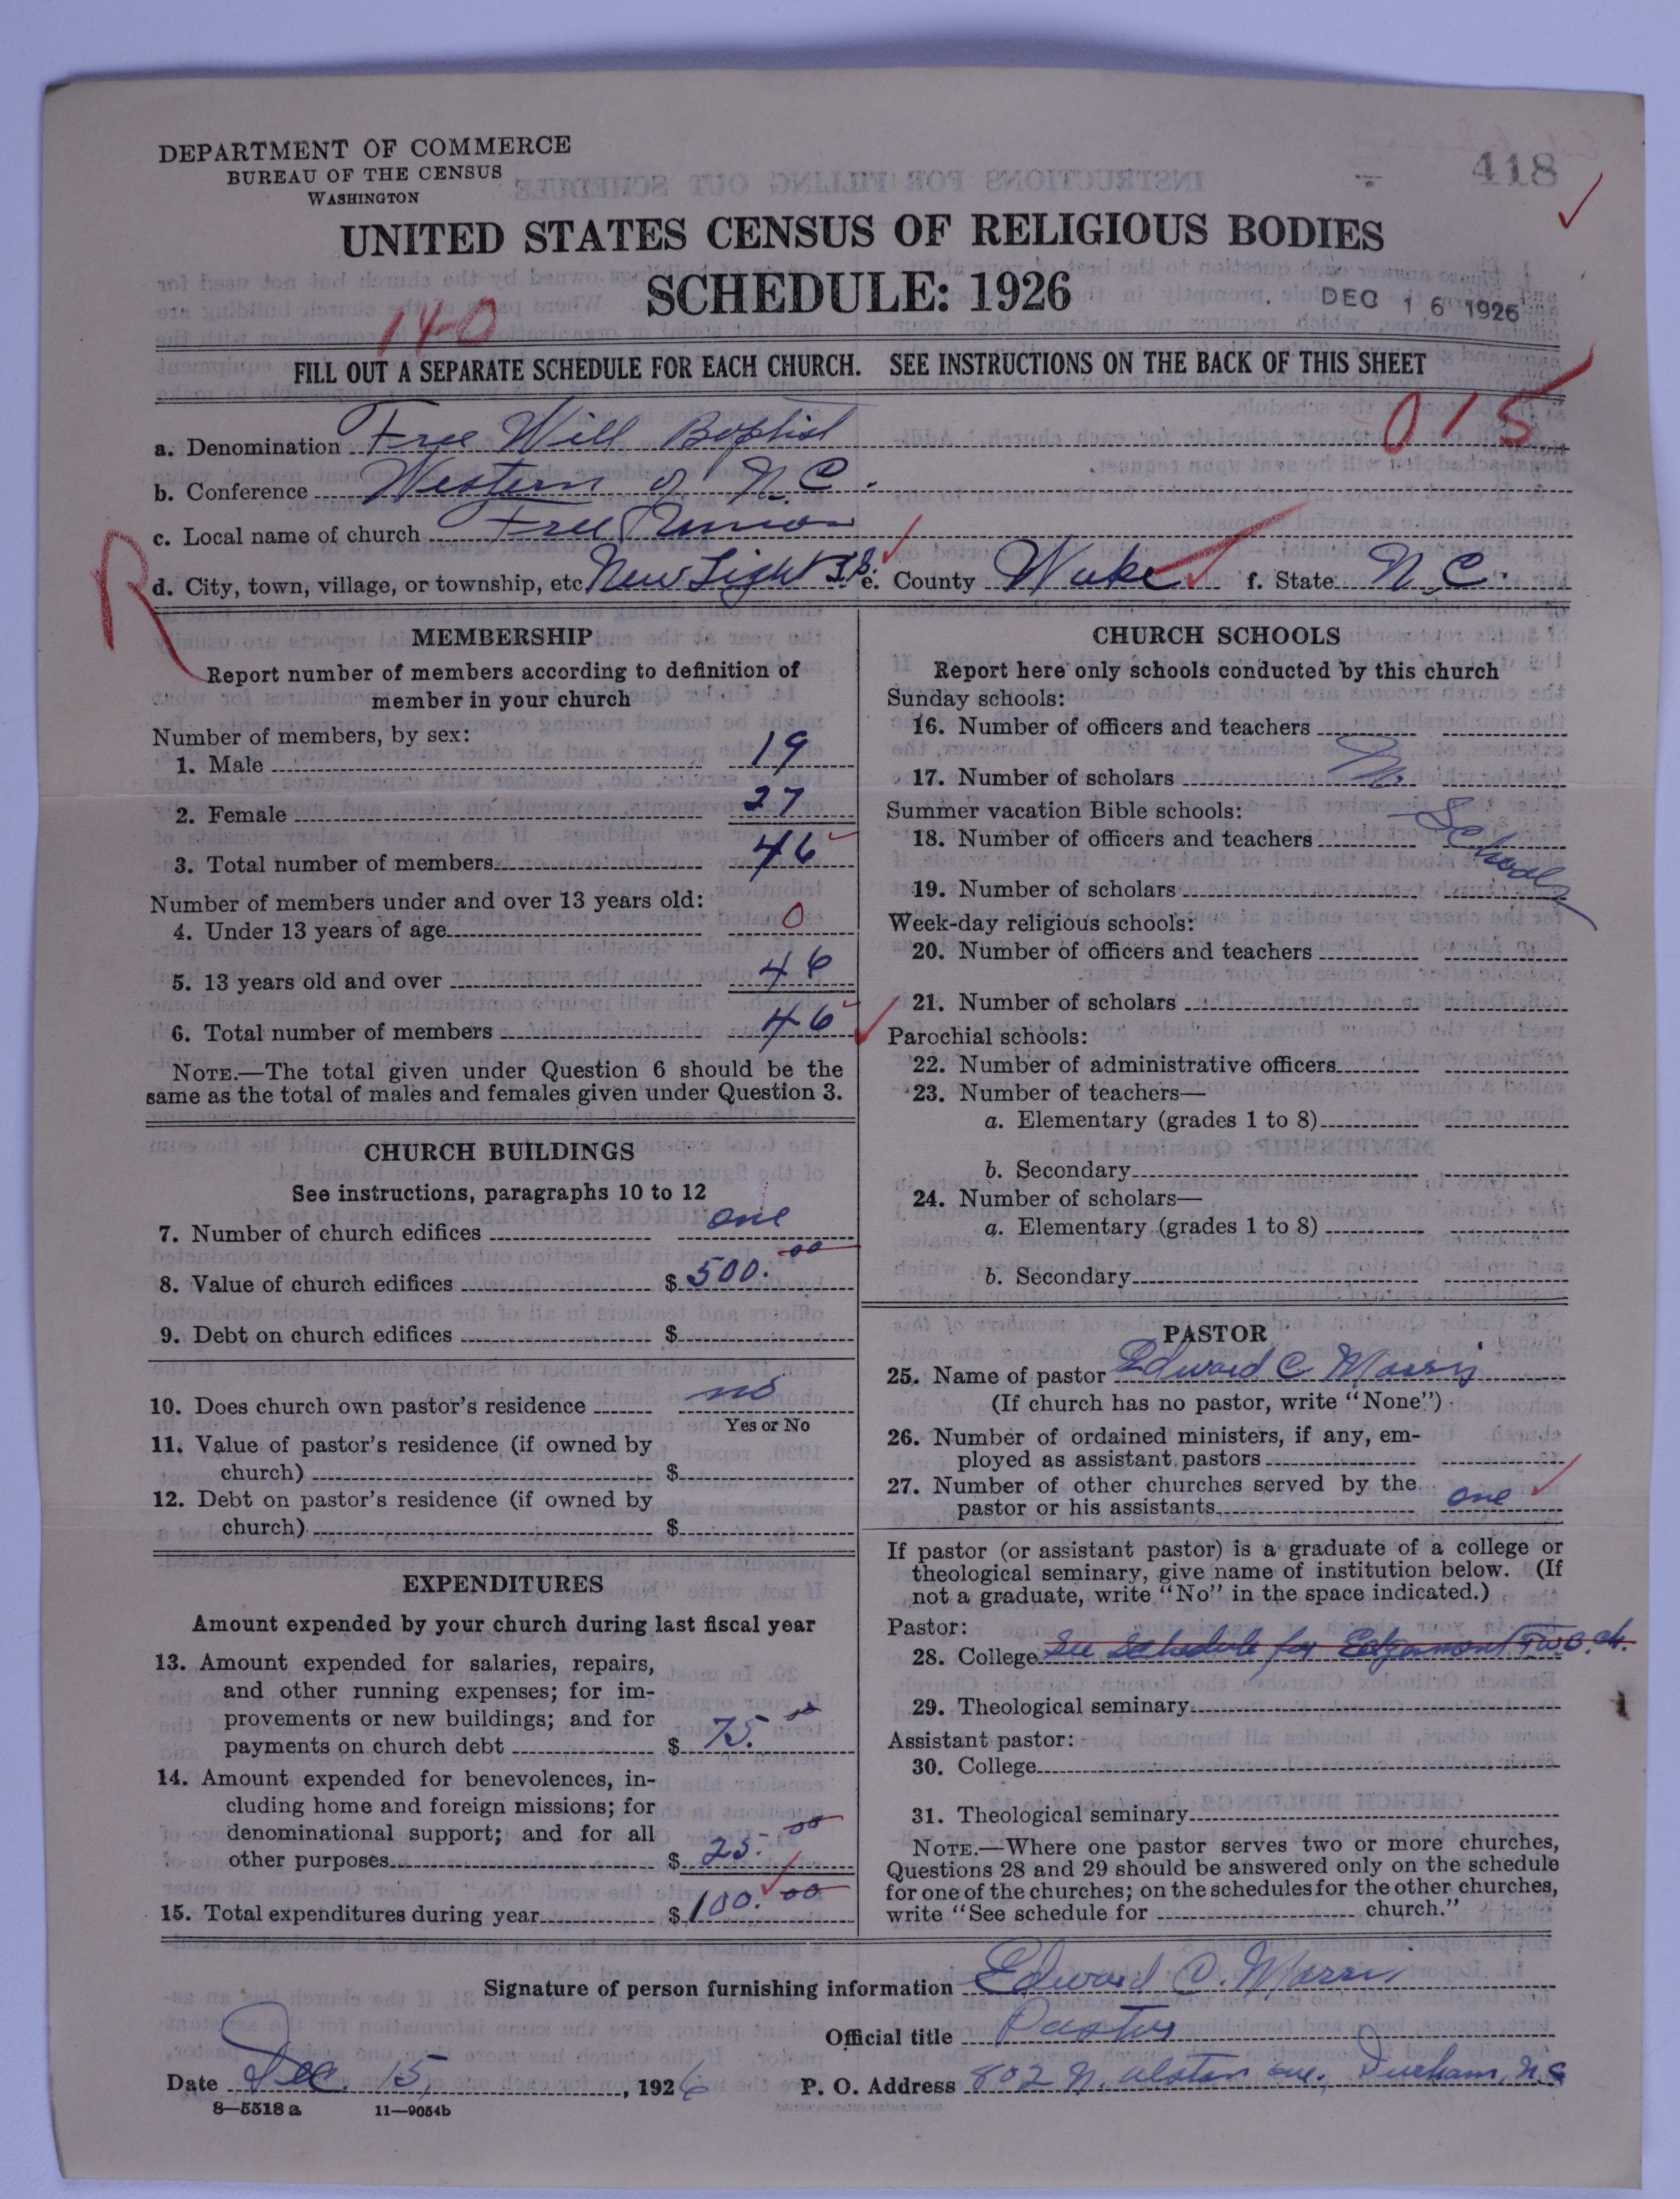 DEPARTMENT OF COMMERCE
BUREAU OF THE CENSUS
WASHINGTON
418
UNITED STATES CENSUS OF RELIGIOUS BODIES
SCHEDULE: 1926
DEC 16 1926
140
FILL OUT A SEPARATE SCHEDULE FOR EACH CHURCH. SEE INSTRUCTIONS ON THE BACK OF THIS SHEET
015
a. Denomination Free Will Baptist
b. Conference Western of N.C.
c. Local name of church Free Union
R
d. City, town, village, or township, etc. New Light e. County Wake f. State N.C.
MEMBERSHIP
Report number of members according to definition of
member in your church
Number of members, by sex:
1. Male 19
2. Female 27
3. Total number of members 46
Number of members under and over 13 years old:
4. Under 13 years of age 0
5. 13 years old and over 46
6. Total number of members 46
NOTE.—The total given under Question 6 should be the
same as the total of males and females given under Question 3.
CHURCH BUILDINGS
See instructions, paragraphs 10 to 12
7. Number of church edifices one
8. Value of church edifices $ 500.00
9. Debt on church edifices $
10. Does church own pastor's residence no
Yes or No
11. Value of pastor's residence (if owned by
church) $
12. Debt on pastor's residence (if owned by
church) $
EXPENDITURES
Amount expended by your church during last fiscal year
13. Amount expended for salaries, repairs,
and other running expenses; for im-
provements or new buildings; and for
payments on church debt $ 75.00
14. Amount expended for benevolences, in-
cluding home and foreign missions; for
denominational support; and for all
other purposes $ 25.00
15. Total expenditures during year $ 100.00
CHURCH SCHOOLS
Report here only schools conducted by this church
Sunday schools:
16. Number of officers and teachers
17. Number of scholars No
Summer vacation Bible schools:
School
18. Number of officers and teachers
19. Number of scholars
Week-day religious schools:
20. Number of officers and teachers
21. Number of scholars
Parochial schools:
22. Number of administrative officers
23. Number of teachers—
a. Elementary (grades 1 to 8)
b. Secondary
24. Number of scholars—
a. Elementary (grades 1 to 8)
b. Secondary
PASTOR
25. Name of pastor Edward C. Morris
(If church has no pastor, write "None")
26. Number of ordained ministers, if any, em-
ployed as assistant pastors
27. Number of other churches served by the
pastor or his assistants one
If pastor (or assistant pastor) is a graduate of a college or
theological seminary, give name of institution below. (If
not a graduate, write "No" in the space indicated.)
Pastor:
28. College See Schedule for Edgemont F.W.B. ch.
29. Theological seminary
Assistant pastor:
30. College
31. Theological seminary
NOTE.—Where one pastor serves two or more churches,
Questions 28 and 29 should be answered only on the schedule
for one of the churches; on the schedules for the other churches,
write "See schedule for church."
Signature of person furnishing information Edward C. Morris
Official title Pastor
Date Dec. 15, 1926 P. O. Address 802 N. Alston ave., Durham, N.C
8—5518a 11—9054b